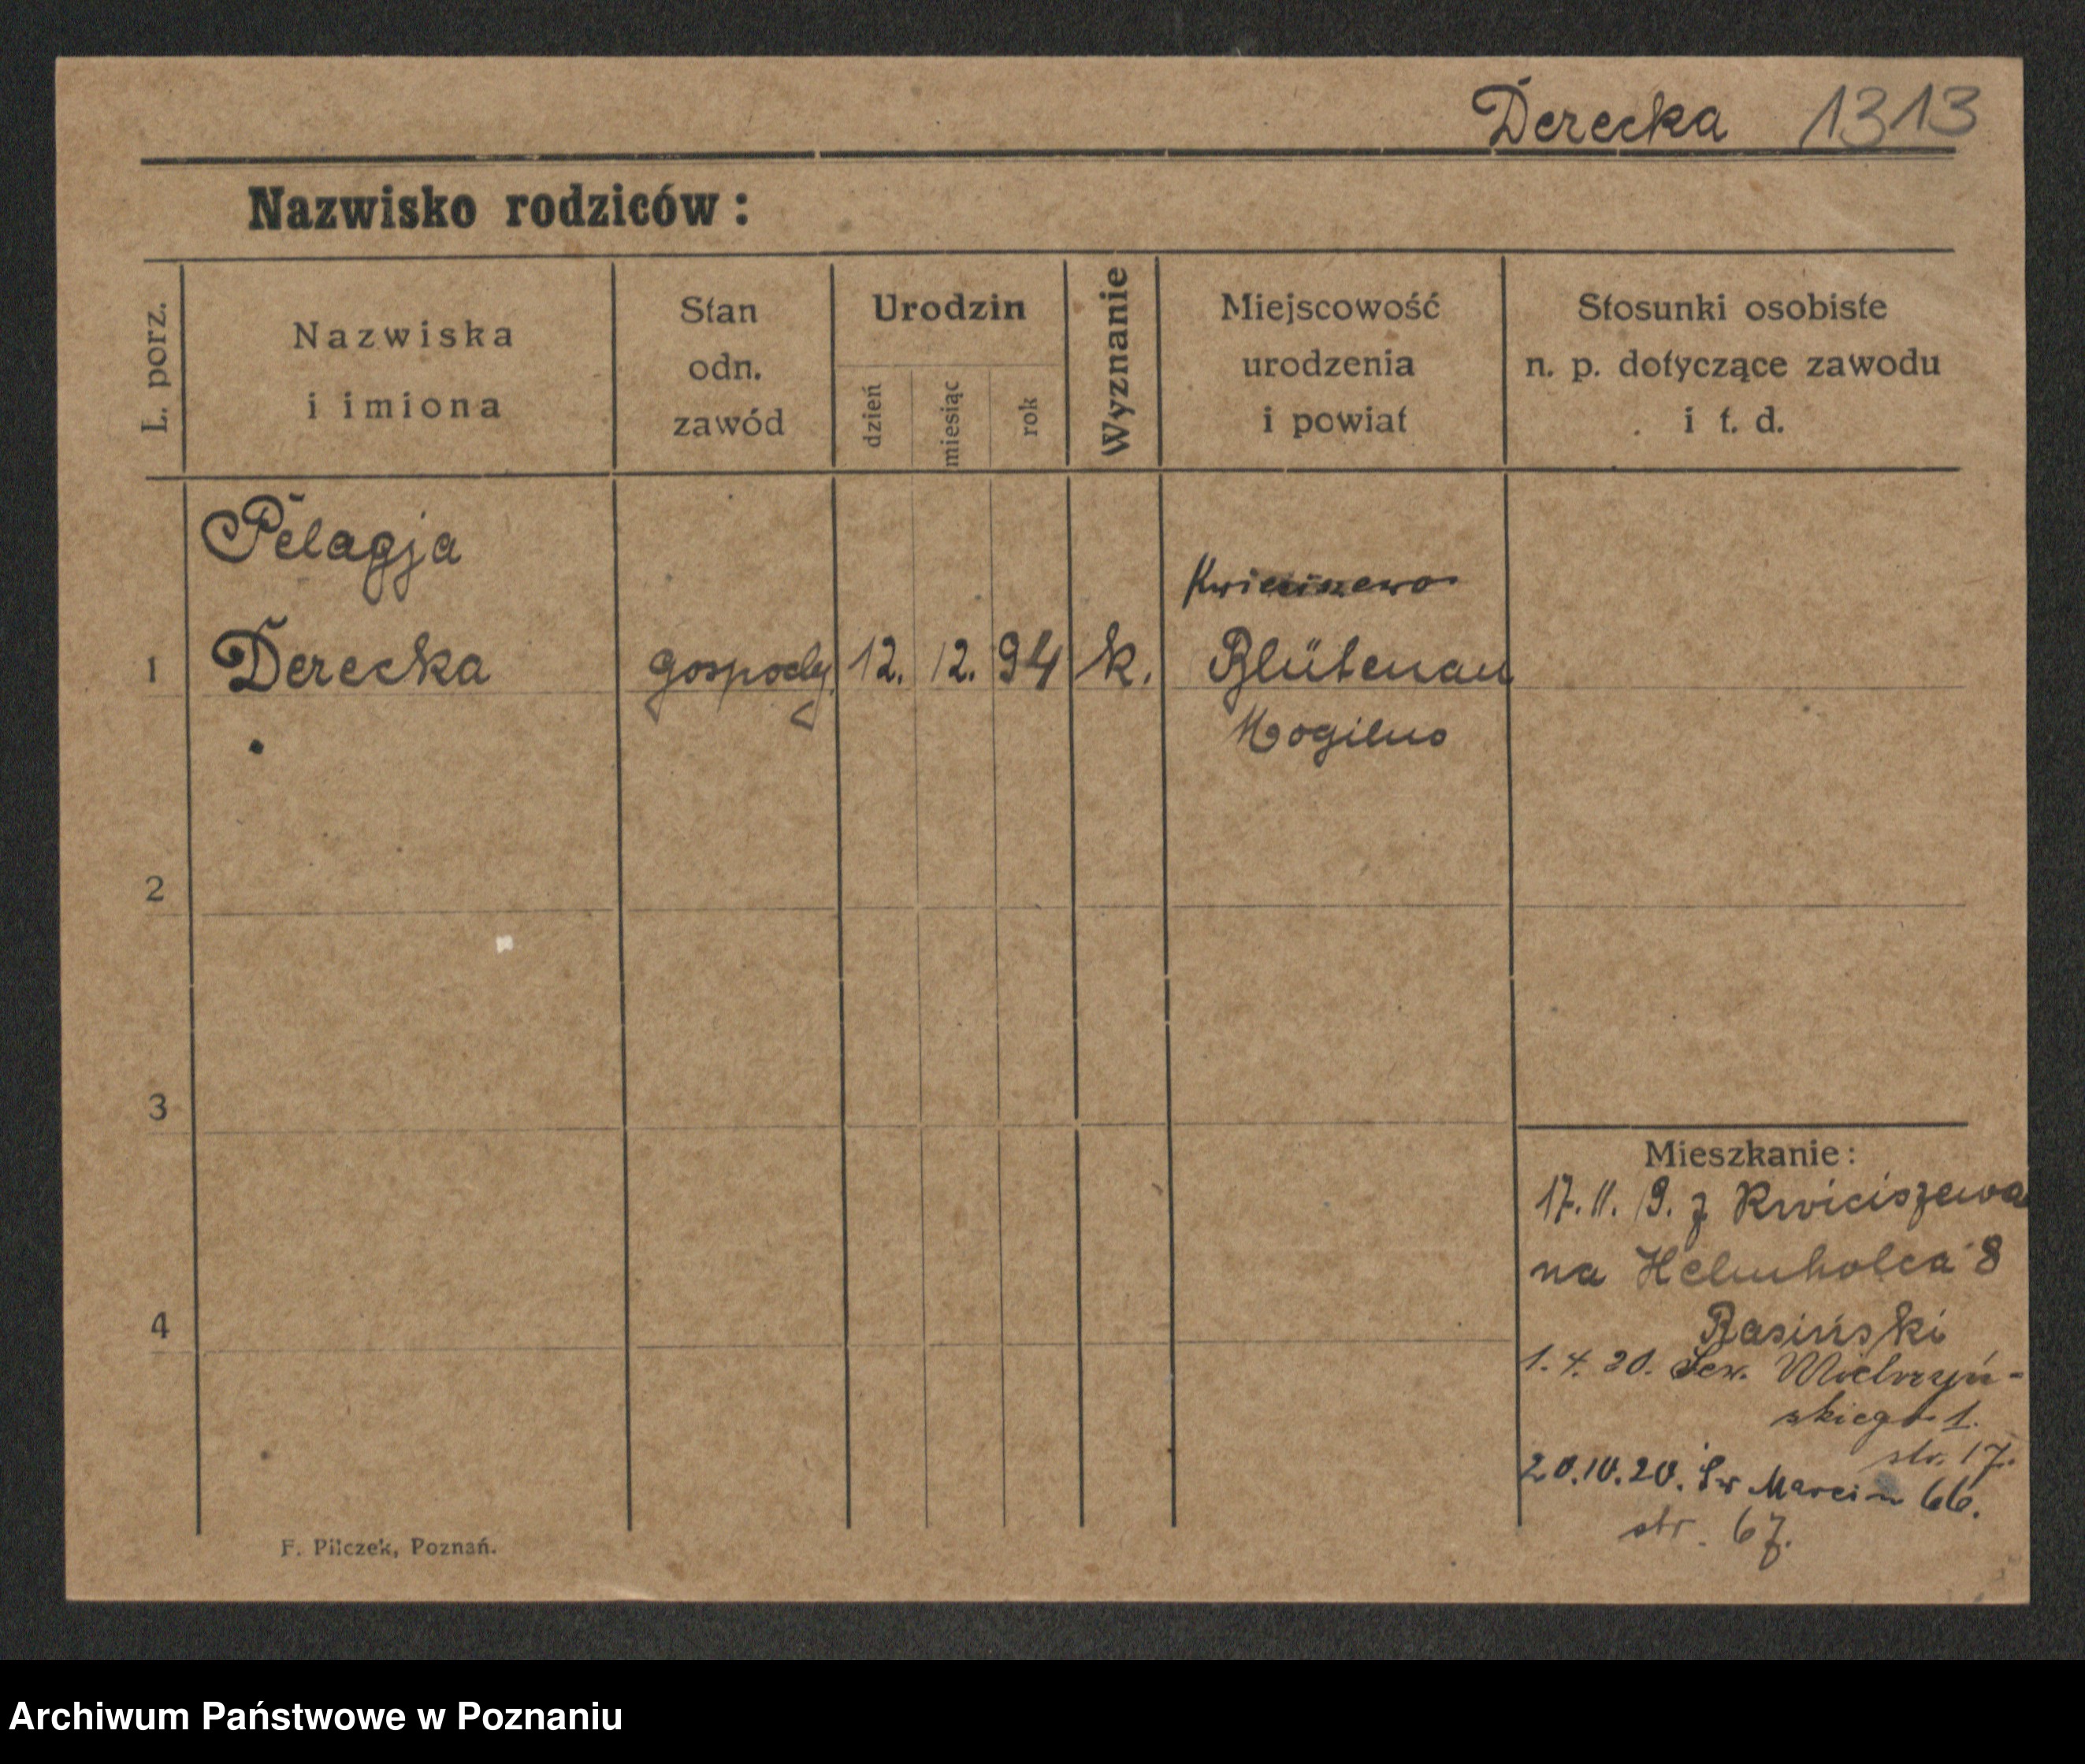 Derecka 1313
Nazwisko rodziców:
L. porz.
Nazwiska
i imiona
Stan
odn.
zawód
Urodzin
dzień
miesiąc
rok
Wyznanie
Miejscowość
urodzenia
i powiat
Stosunki osobiste
n. p. dotyczące zawodu
i t. d.
Pelagja
Kwieciszewo
1 Derecka gospody. 12. 12. 94 k. Blütenau
Mogilno
2
3
4
Mieszkanie:
17. 11. 19. z Kwieciszewa
na Helmholca 8
Basiński
1. 4. 20. Sew. Mielżyń-
skiego 1.
str. 17.
20.10.20. Św Marcin 66.
str. 67.
F. Pilczek, Poznań.
Archiwum Państwowe w Poznaniu